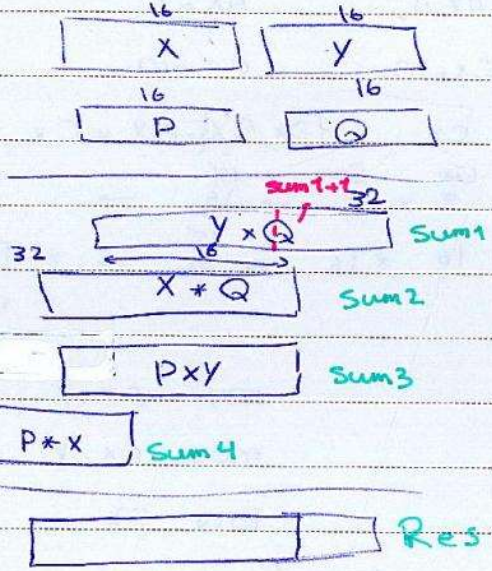 16 16
X Y
16 16
P Q
sum1+1 32
Y × Q Sum1
32 16
X * Q Sum2
P×Y Sum3
P * X Sum4
Res